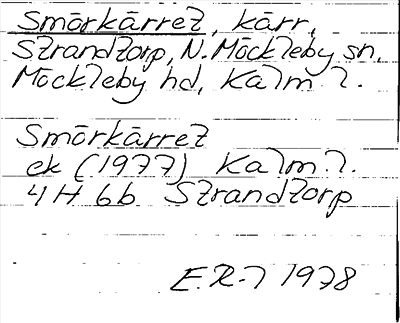 Smörkärret, kärr,
Strandtorp, N. Möckleby sn,
Möckleby hd, Kalm. l.
Smörkärret
ek (1977) Kalm. l.
4H 6b Strandtorp
E.R-l 1978